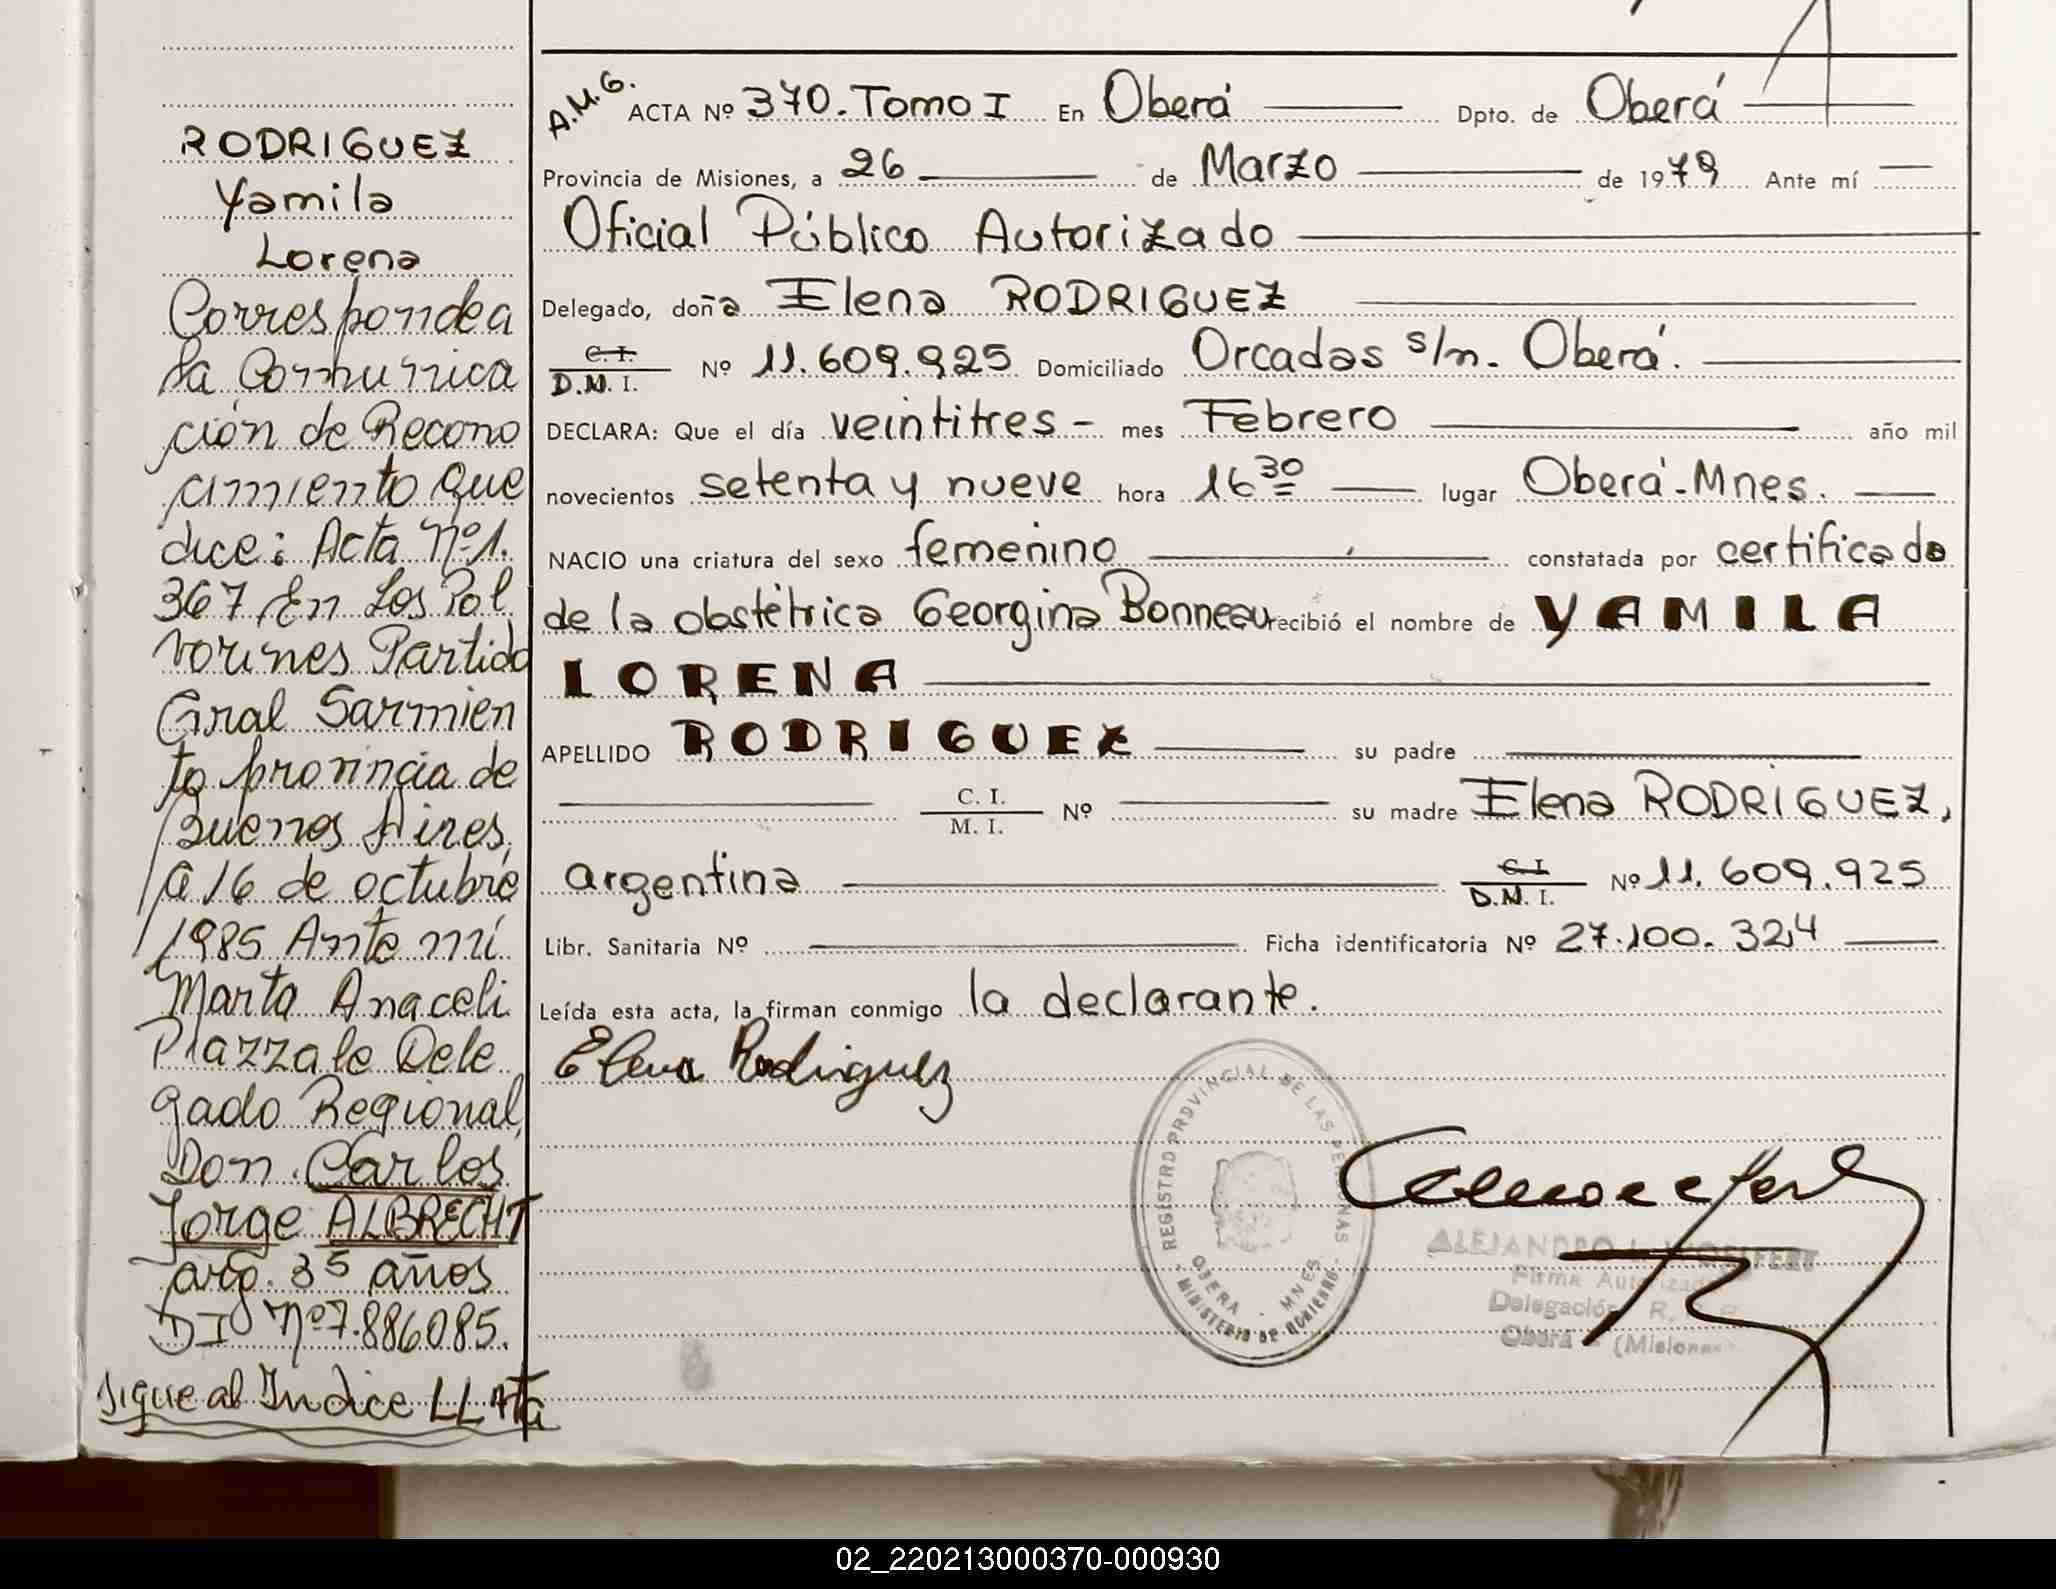 RODRIGUEZ
Yamila
Lorena
Corresponde a
la Comunica
ción de Recono
cimiento que
dice: Acta Nº1.
367 En Los Pol
vorines Partido
Gral Sarmien
to provincia de
Buenos Aires,
a 16 de octubre
1985 Ante mí
Marta Anaceli
Piazzale Dele
gado Regional,
Don. Carlos
Jorge ALBRECHT
arg. 35 años
DI Nº7.886085.
Sigue al Indice LL Ata
A.M.G. ACTA Nº 370. Tomo I En Oberá Dpto. de Oberá
Provincia de Misiones, a 26 de Marzo de 1979 Ante mí
Oficial Público Autorizado
Delegado, doña Elena RODRIGUEZ
C.I. D.N.I. Nº 11.609.925 Domiciliado Orcadas s/n. Oberá.
DECLARA: Que el día veintitres - mes Febrero año mil
novecientos setenta y nueve hora 16 30 lugar Oberá-Mnes.
NACIO una criatura del sexo femenino constatada por certificado
de la obstétrica Georgina Bonneau recibió el nombre de YAMILA
LORENA
APELLIDO RODRIGUEZ su padre
C. I. M. I. Nº su madre Elena RODRIGUEZ,
argentina C.I D.N.I. Nº 11.609.925
Libr. Sanitaria Nº Ficha identificatoria Nº 27.100.324
Leída esta acta, la firman conmigo la declarante.
Elena Rodriguez
REGISTRO PROVINCIAL DE LAS PERSONAS
OBERA - MNES
MINISTERIO DE GOBIERNO
ALEJANDRO L.
Firma Autorizada
Delegación R.
Oberá (Misiones
02_220213000370-000930